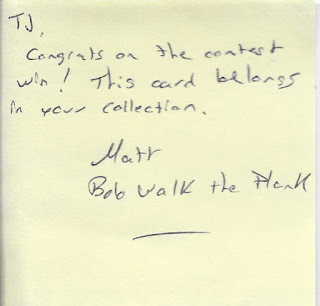 TJ,
Congrats on the contest
win! This card belongs
in your collection.
Matt
Bob Walk the Plank